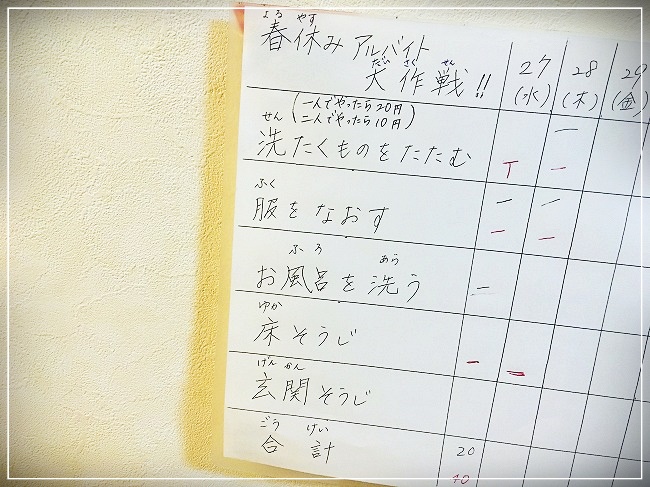 はる やす
春休み アルバイト
だい さく せん
大作戦!!
27 28 29
(水) (木) (金)
(一人でやったら20円
二人でやったら10円)
せん
洗たくものをたたむ
ふく
服をなおす
ふ ろ あら
お風呂を洗う
ゆか
床そうじ
げん かん
玄関そうじ
ごう けい
合計
20
40